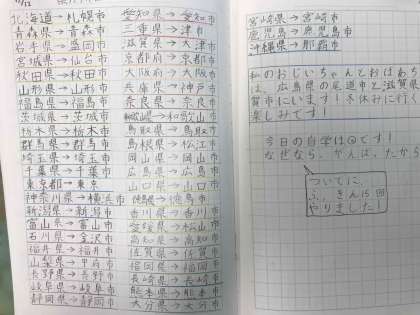 北海道→札幌市
青森県→青森市
岩手県→盛岡市
宮城県→仙台市
秋田県→秋田市
山形県→山形市
福島県→福島市
茨城県→茨城市
栃木県→栃木市
群馬県→群馬市
埼玉県→埼玉市
千葉県→千葉市
東京都→東京
神奈川県→横浜市
新潟県→新潟市
富山県→富山市
石川県→金沢市
福井県→福井市
山梨県→甲府市
長野県→長野市
岐阜県→岐阜市
静岡県→静岡市
愛知県→愛知市
三重県→津市
滋賀県→大津市
京都府→京都市
大阪府→大阪市
兵庫県→神戸市
奈良県→奈良市
和歌山県→和歌山市
鳥取県→鳥取市
島根県→松江市
岡山県→岡山市
広島県→広島市
山口県→山口市
徳島県→徳島市
香川県→香川市
愛媛県→松山市
高知県→高知市
佐賀県→佐賀市
福岡県→福岡市
長崎県→長崎市
熊本県→熊本市
大分県→大分市
宮崎県→宮崎市
鹿児島→鹿児島市
沖縄県→那覇市
私のおじいちゃんとおばあち
は、広島県の尾道市と滋賀県
賀市にいます!冬休みに行く
楽しみです!
今日の自学は◎です!
なぜなら、がんば、たから
ついでに、
ふ、きん15回
やりました!